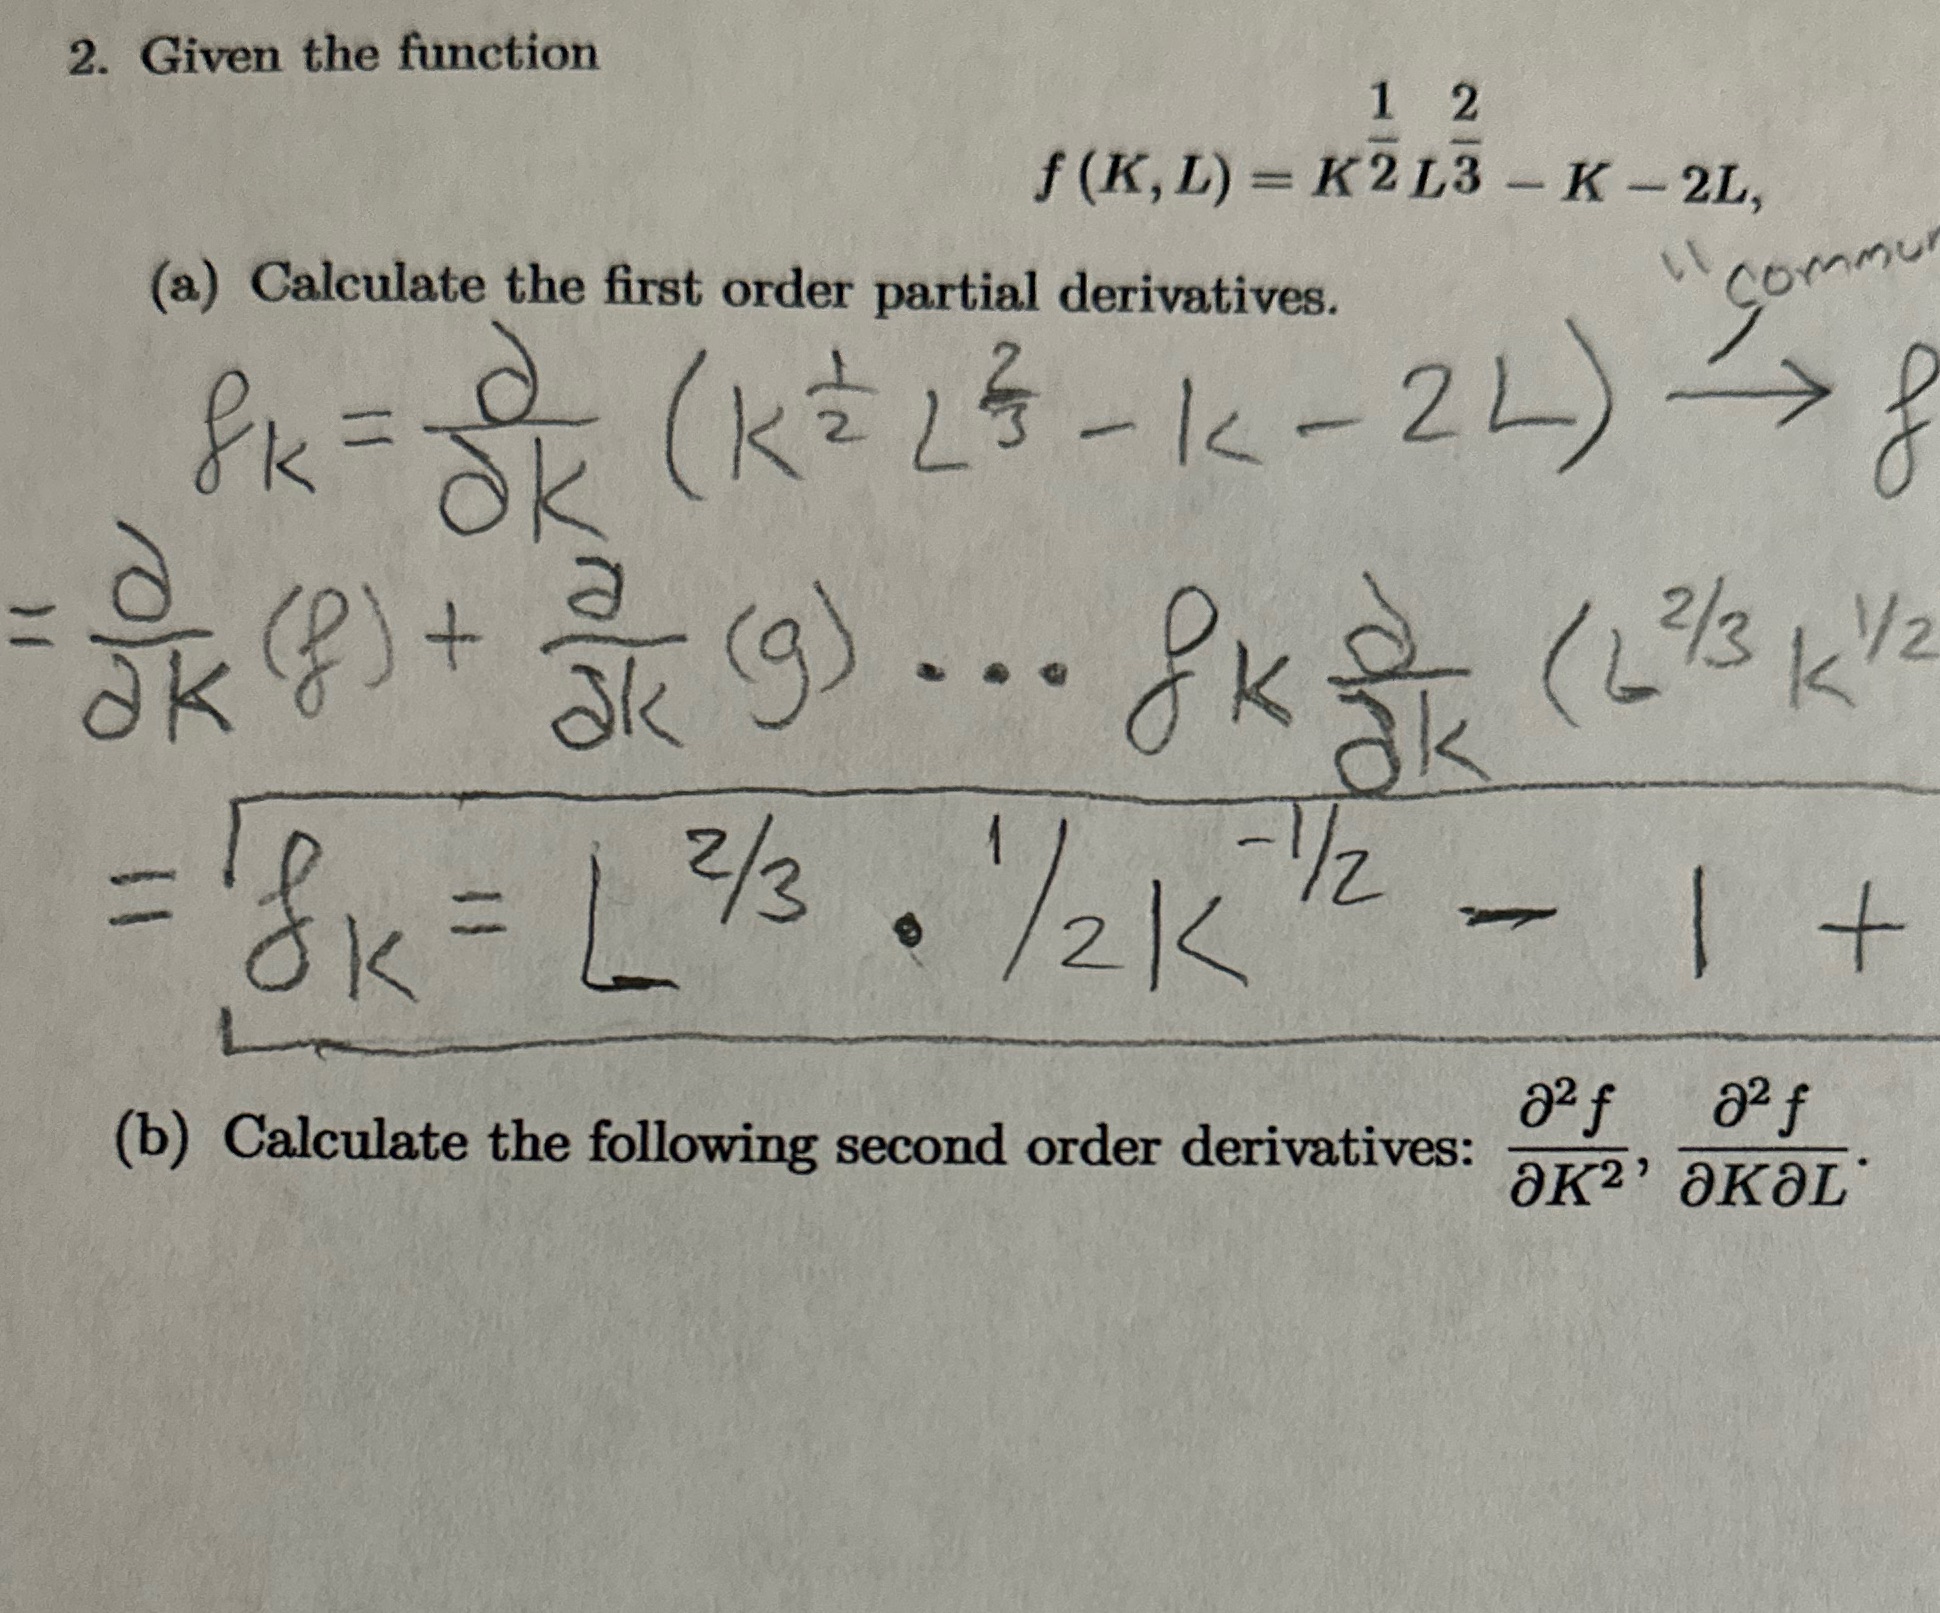 2. Given the function
f (K, L) = K^{1/2} L^{2/3} − K − 2L,
(a) Calculate the first order partial derivatives.
"
f_K = ∂/∂K (K^{1/2} L^{2/3} − K − 2L) → f
= ∂/∂K (f) + ∂/∂K (g) ... f_K ∂/∂K (L^{2/3} K^{1/2}
= f_K = L^{2/3} · 1/2 K^{-1/2} − 1 +
(b) Calculate the following second order derivatives: ∂²f/∂K², ∂²f/∂K∂L.